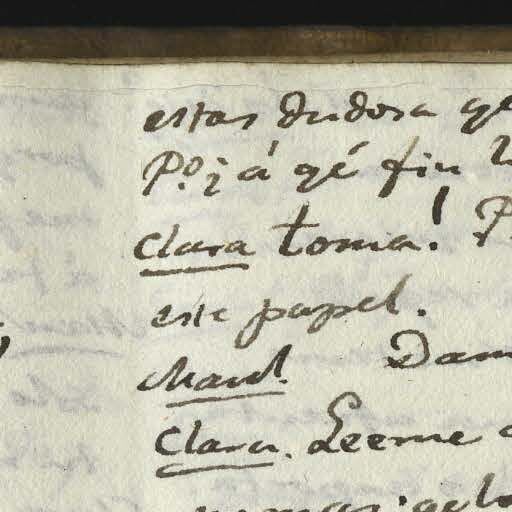 estas dudosa qe
P.o ¿á qé fin
Clara toma!
este papel.
Maul.
Clara. Leeme